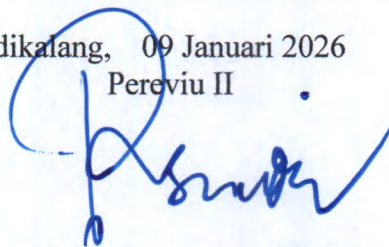 dikalang, 09 Januari 2026
Pereviu II